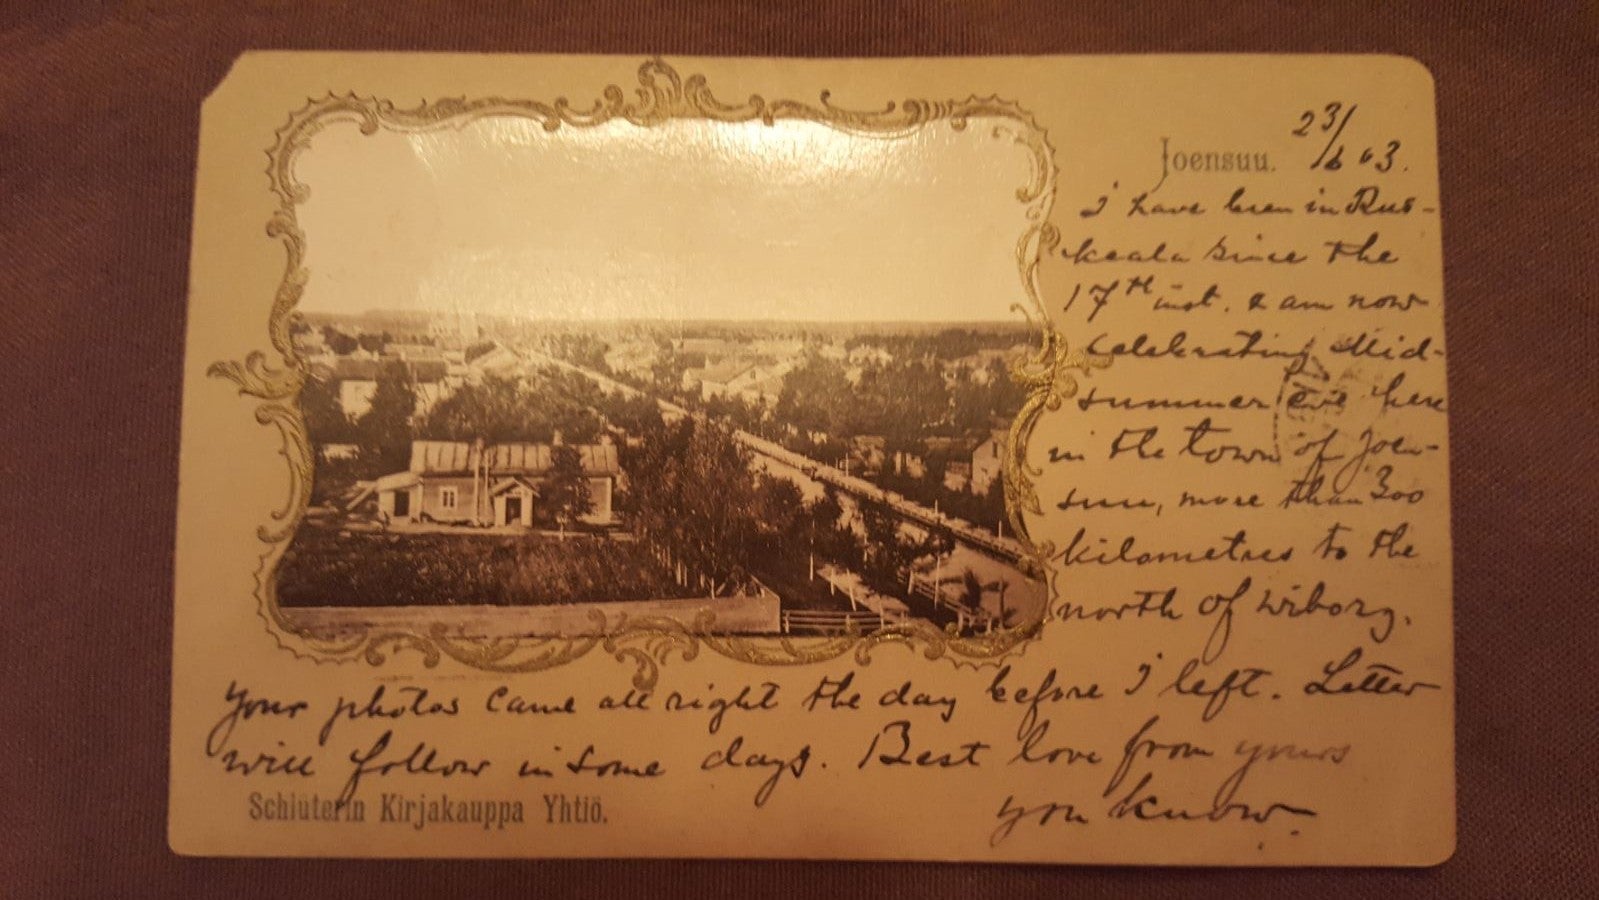 Joensuu. 23/6 03.
I have been in Rus-
keala since the
17th inst. & am now
celebrating Mid-
summer eve here
in the town of Joen-
suu, more than 300
kilometres to the
north of Wiborg.
Your photos came all right the day before I left. Letter
will follow in some days. Best love from yours
you know.
Schlüterin Kirjakauppa Yhtiö.